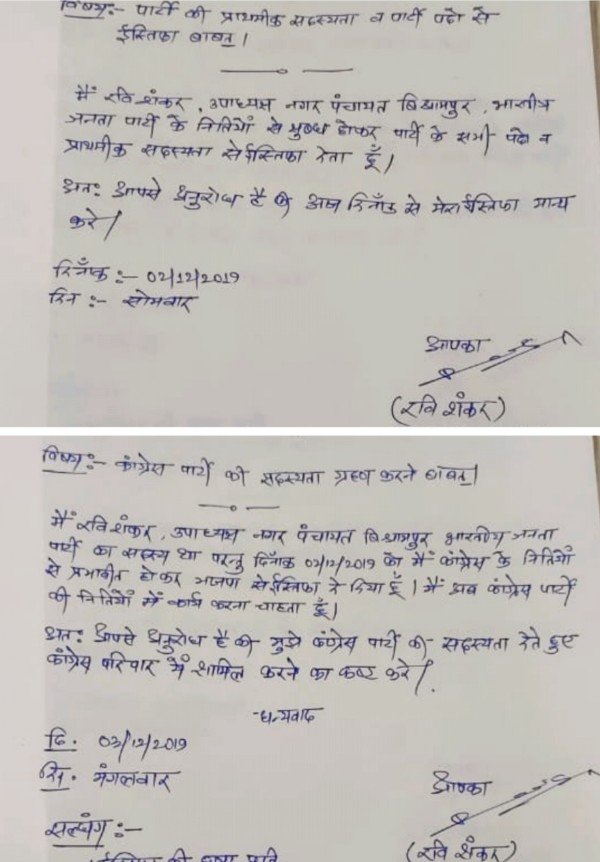 विषय:- पार्टी की प्राथमीक सदस्यता व पार्टी पदो से
ईस्तिफा बाबत्।
मैं रवि शंकर, उपाध्यक्ष नगर पंचायत बिश्रामपुर, भारतीय
जनता पार्टी के नितियों से क्षुब्ध होकर पार्टी के सभी पदो व
प्राथमीक सदस्यता से ईस्तिफा देता हूँ।
अतः आपसे अनुरोध है की आज दिनाँक से मेरा ईस्तिफा मान्य
करे।
दिनाँक :- 02/12/2019
दिन :- सोमवार
आपका
(रवि शंकर)
विषय:- कांग्रेस पार्टी की सदस्यता ग्रहण करने बाबत्।
मैं रवि शंकर, उपाध्यक्ष नगर पंचायत बिश्रामपुर भारतीय जनता
पार्टी का सदस्य था परन्तु दिनाँक 02/12/2019 को मैं कांग्रेस के नितियों
से प्रभावीत होकर भाजपा से ईस्तिफा दे दिया हूँ। मैं अब कांग्रेस पार्टी
की नितियों में कार्य करना चाहता हूँ।
अतः आपसे अनुरोध है की मुझे कांग्रेस पार्टी की सदस्यता देते हुए
कांग्रेस परिवार में शामिल करने का कष्ट करे।
-धन्यवाद
दि. 03/12/2019
दि. मंगलवार
आपका
सलग्न :-
(रवि शंकर)